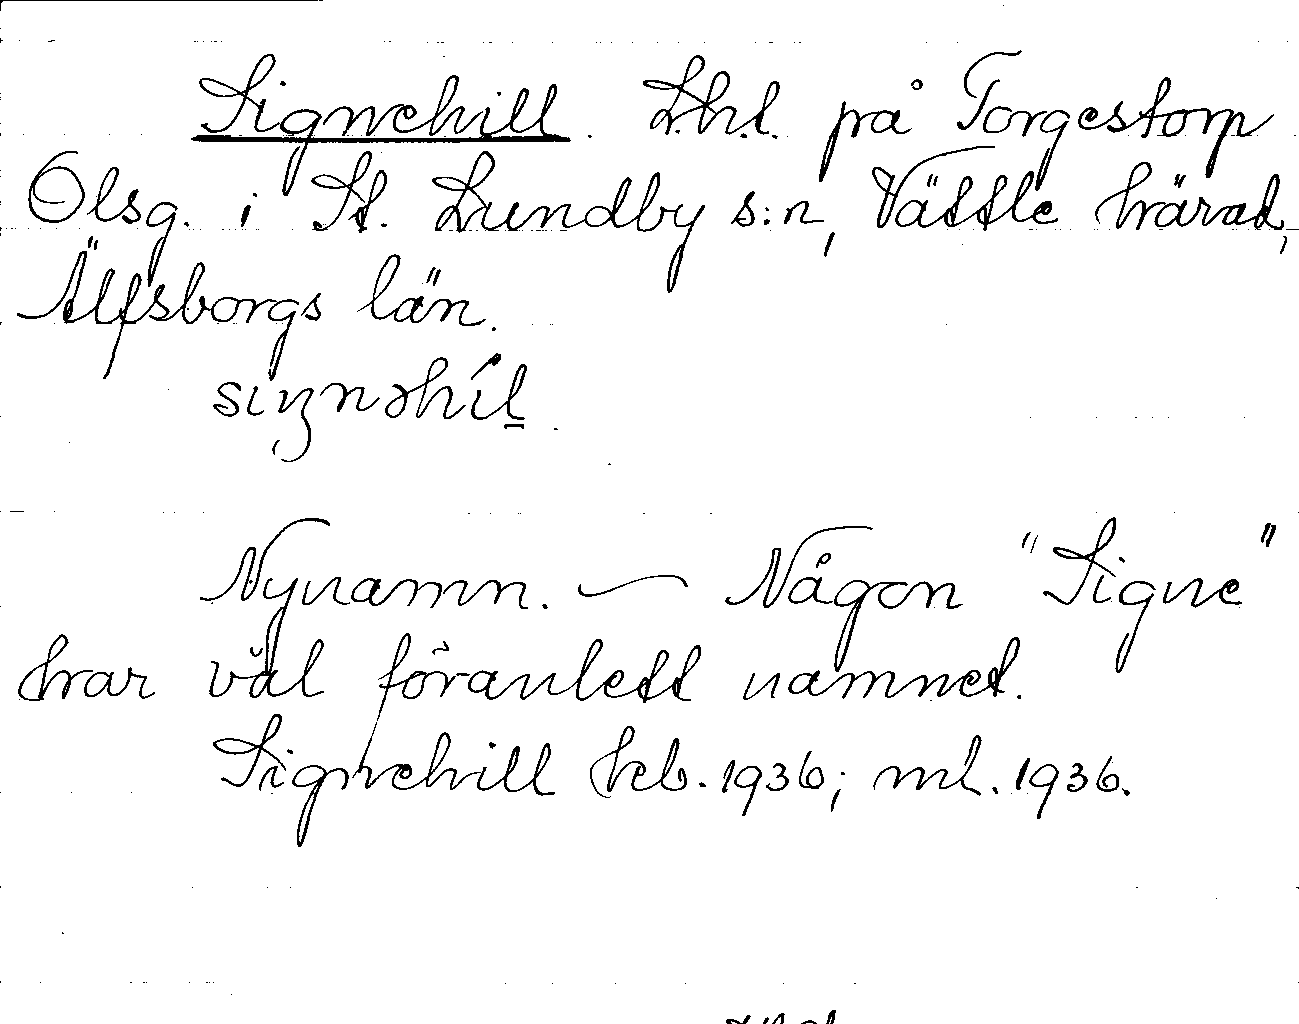 Signehill. Lht. på Torgestorp
Olsg. i St. Lundby s:n, Vättle härad,
Älfsborgs län.
sıŋnəhíl.
Nynamn. — Någon "Signe"
har väl föranlett namnet.
Signehill hcb. 1936; ml. 1936.